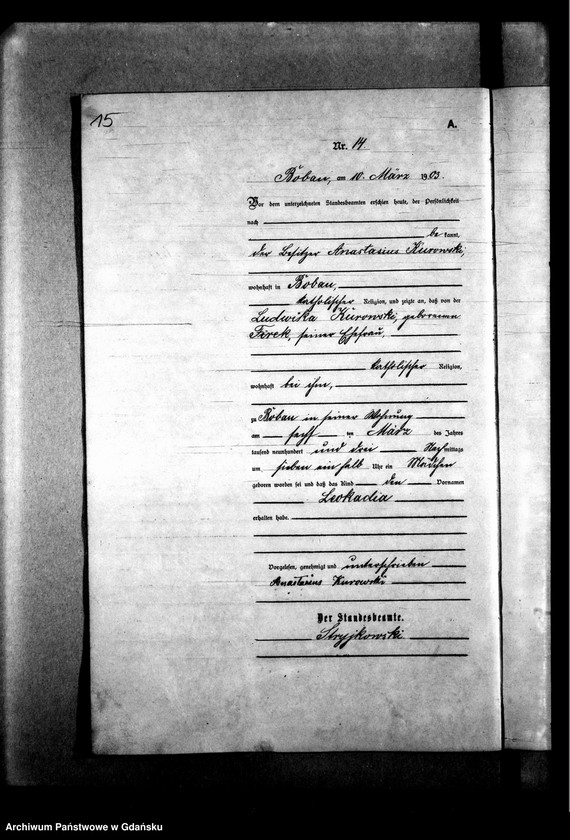 15
A.
Nr. 14
Boban, am 10. März 1903.
Vor dem unterzeichneten Standesbeamten erschien heute, der Persönlichkeit
nach
be kannt,
der Besitzer Anastasius Kurowski,
wohnhaft in Boban,
katholischer Religion, und zeigte an, daß von der
Ludwika Kurowski, geborenen
Firek, seiner Ehefrau,
katholischer Religion,
wohnhaft bei ihm,
zu Boban in seiner Wohnung
am sechs ten März des Jahres
tausend neunhundert und drei Nachmittags
um sieben ein halb Uhr ein Mädchen
geboren worden sei und daß das Kind den Vornamen
Leokadia
erhalten habe.
Vorgelesen, genehmigt und unterschrieben
Anastasius Kurowski
Der Standesbeamte.
Stryjkowski
Archiwum Państwowe w Gdańsku